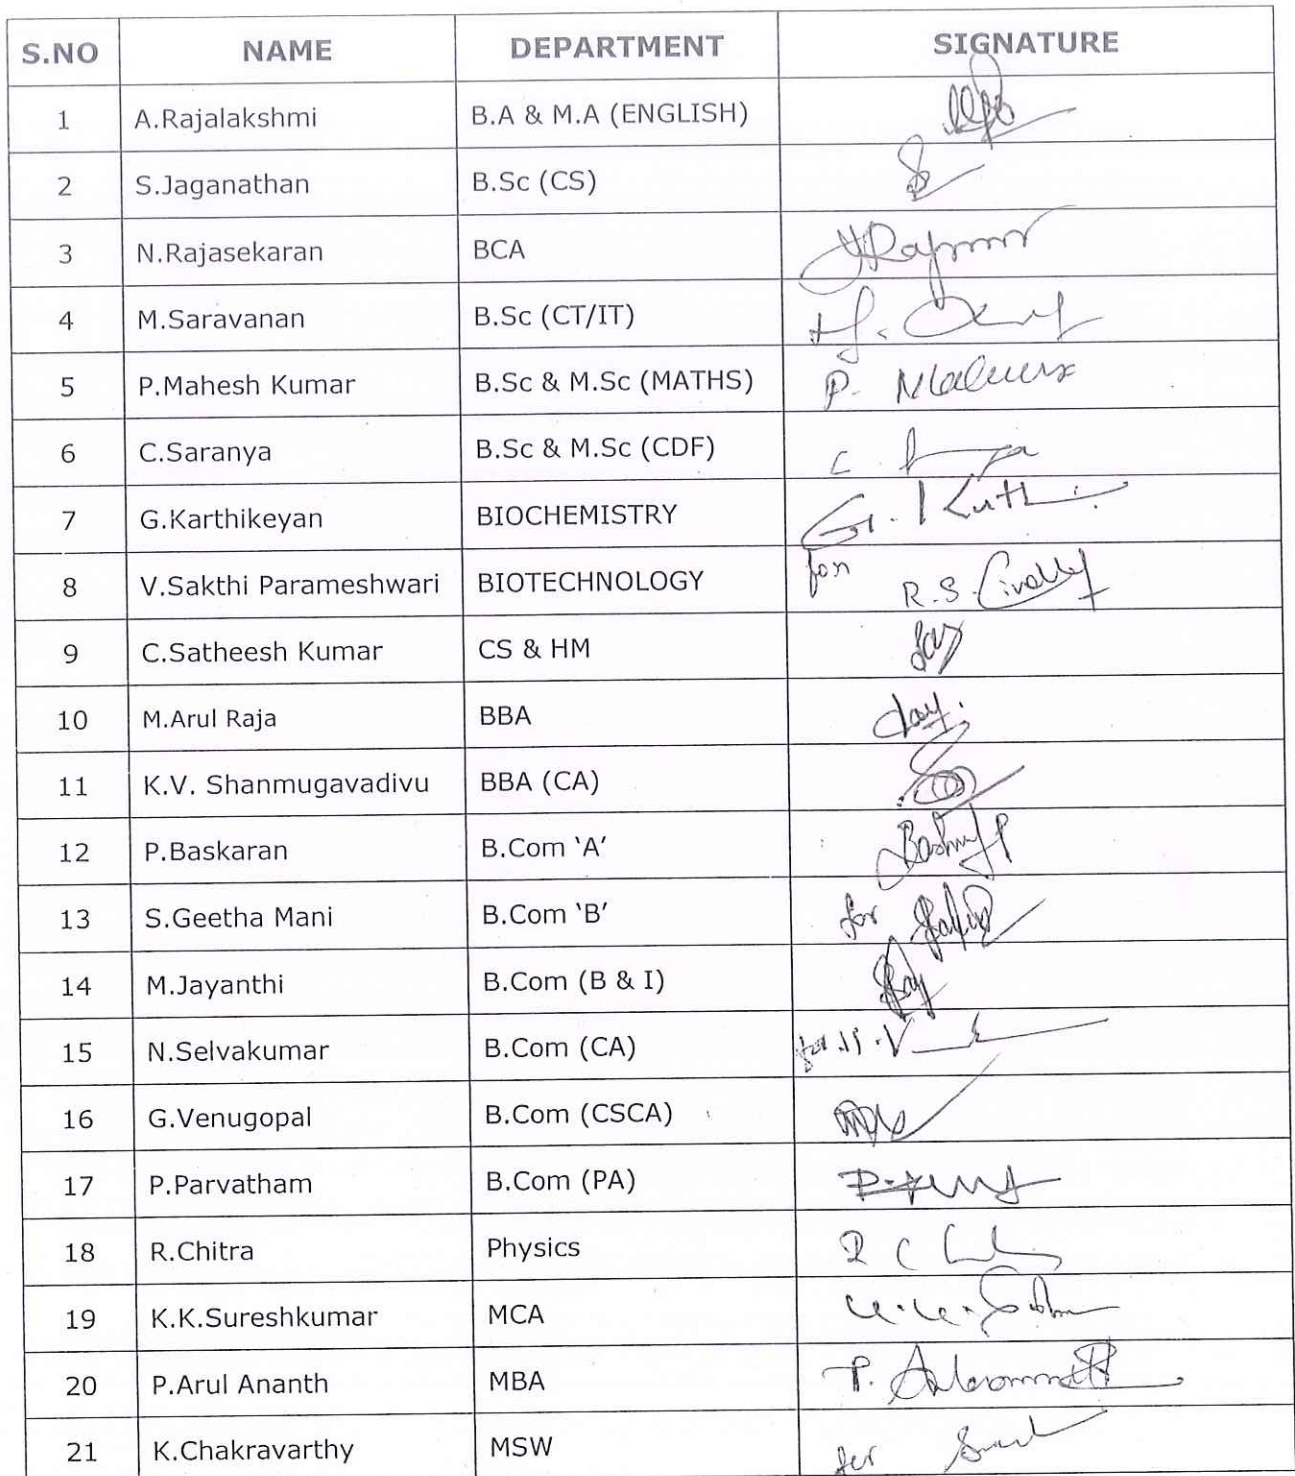 S.NO NAME DEPARTMENT SIGNATURE
1 A.Rajalakshmi B.A & M.A (ENGLISH)
2 S.Jaganathan B.Sc (CS)
3 N.Rajasekaran BCA
4 M.Saravanan B.Sc (CT/IT)
5 P.Mahesh Kumar B.Sc & M.Sc (MATHS) P.
6 C.Saranya B.Sc & M.Sc (CDF) C.
7 G.Karthikeyan BIOCHEMISTRY G.
8 V.Sakthi Parameshwari BIOTECHNOLOGY for R.S.
9 C.Satheesh Kumar CS & HM
10 M.Arul Raja BBA
11 K.V. Shanmugavadivu BBA (CA)
12 P.Baskaran B.Com ‘A’
13 S.Geetha Mani B.Com ‘B’ for
14 M.Jayanthi B.Com (B & I)
15 N.Selvakumar B.Com (CA) for
16 G.Venugopal B.Com (CSCA)
17 P.Parvatham B.Com (PA)
18 R.Chitra Physics
19 K.K.Sureshkumar MCA
20 P.Arul Ananth MBA P.
21 K.Chakravarthy MSW for